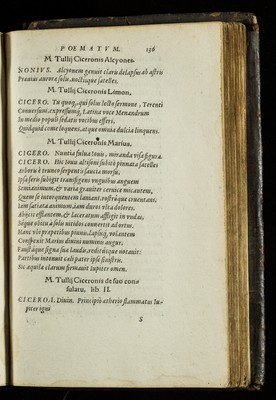 POEMATVM. 136
M. Tullij Ciceronis Alcyones.
NONIVS. Alcyonem genuit claris delapsus ab astris
Præuius auroræ solis noctisque satelles.
M. Tullij Ciceronis Limon.
CICERO. Tu quoque, qui solus lecto sermone, Terenti
Conuersum, expressumque Latina voce Menandrum
In medio populi sedatis vocibus effers,
Quidquid come loquens, atque omnia dulcia linquens.
M. Tullij Ciceronis Marius.
CICERO. Nuntia fulua Iouis, miranda visa figura.
CICERO. Hic Iouis altisoni subitò pinnata satelles
Arboris è trunco serpentis saucia morsu,
Ipsa feris subigit transfigens vnguibus anguem
Semianimum, & varia grauiter ceruice micantem,
Quem se intorquentem lanians, rostróque cruentans:
Iam satiata animum, iam duros vlta dolores
Abijcit efflantem, & laceratum affligit in vndas,
Séque obitu à solis nitidos conuertit ad ortus,
Hanc vbi præpetibus pinnis, lapsúque volantem
Conspexit Marius diuini numinis augur,
Faustáque signa suæ laudis, reditúsque notauit:
Partibus intonuit cæli pater ipse sinistris.
Sic aquilæ clarum firmauit Iupiter omen.
M. Tullij Ciceronis de suo con-
sulatu, lib. II.
CICERO. I. Diuin. Principio æthereo flammatus Iu-
piter igni
S